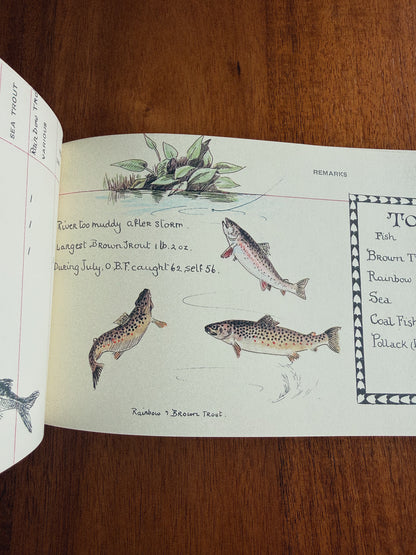 SEA TROUT
Rainbow
VARIOUS
1
1
1
REMARKS
River too muddy after storm.
Largest Brown Trout 1 lb. 2 oz.
During July, O.B.F. caught 62, self 56.
Rainbow & Brown Trout.
Fish
Brown
Rainbow
Sea
Coal Fish
Pollack